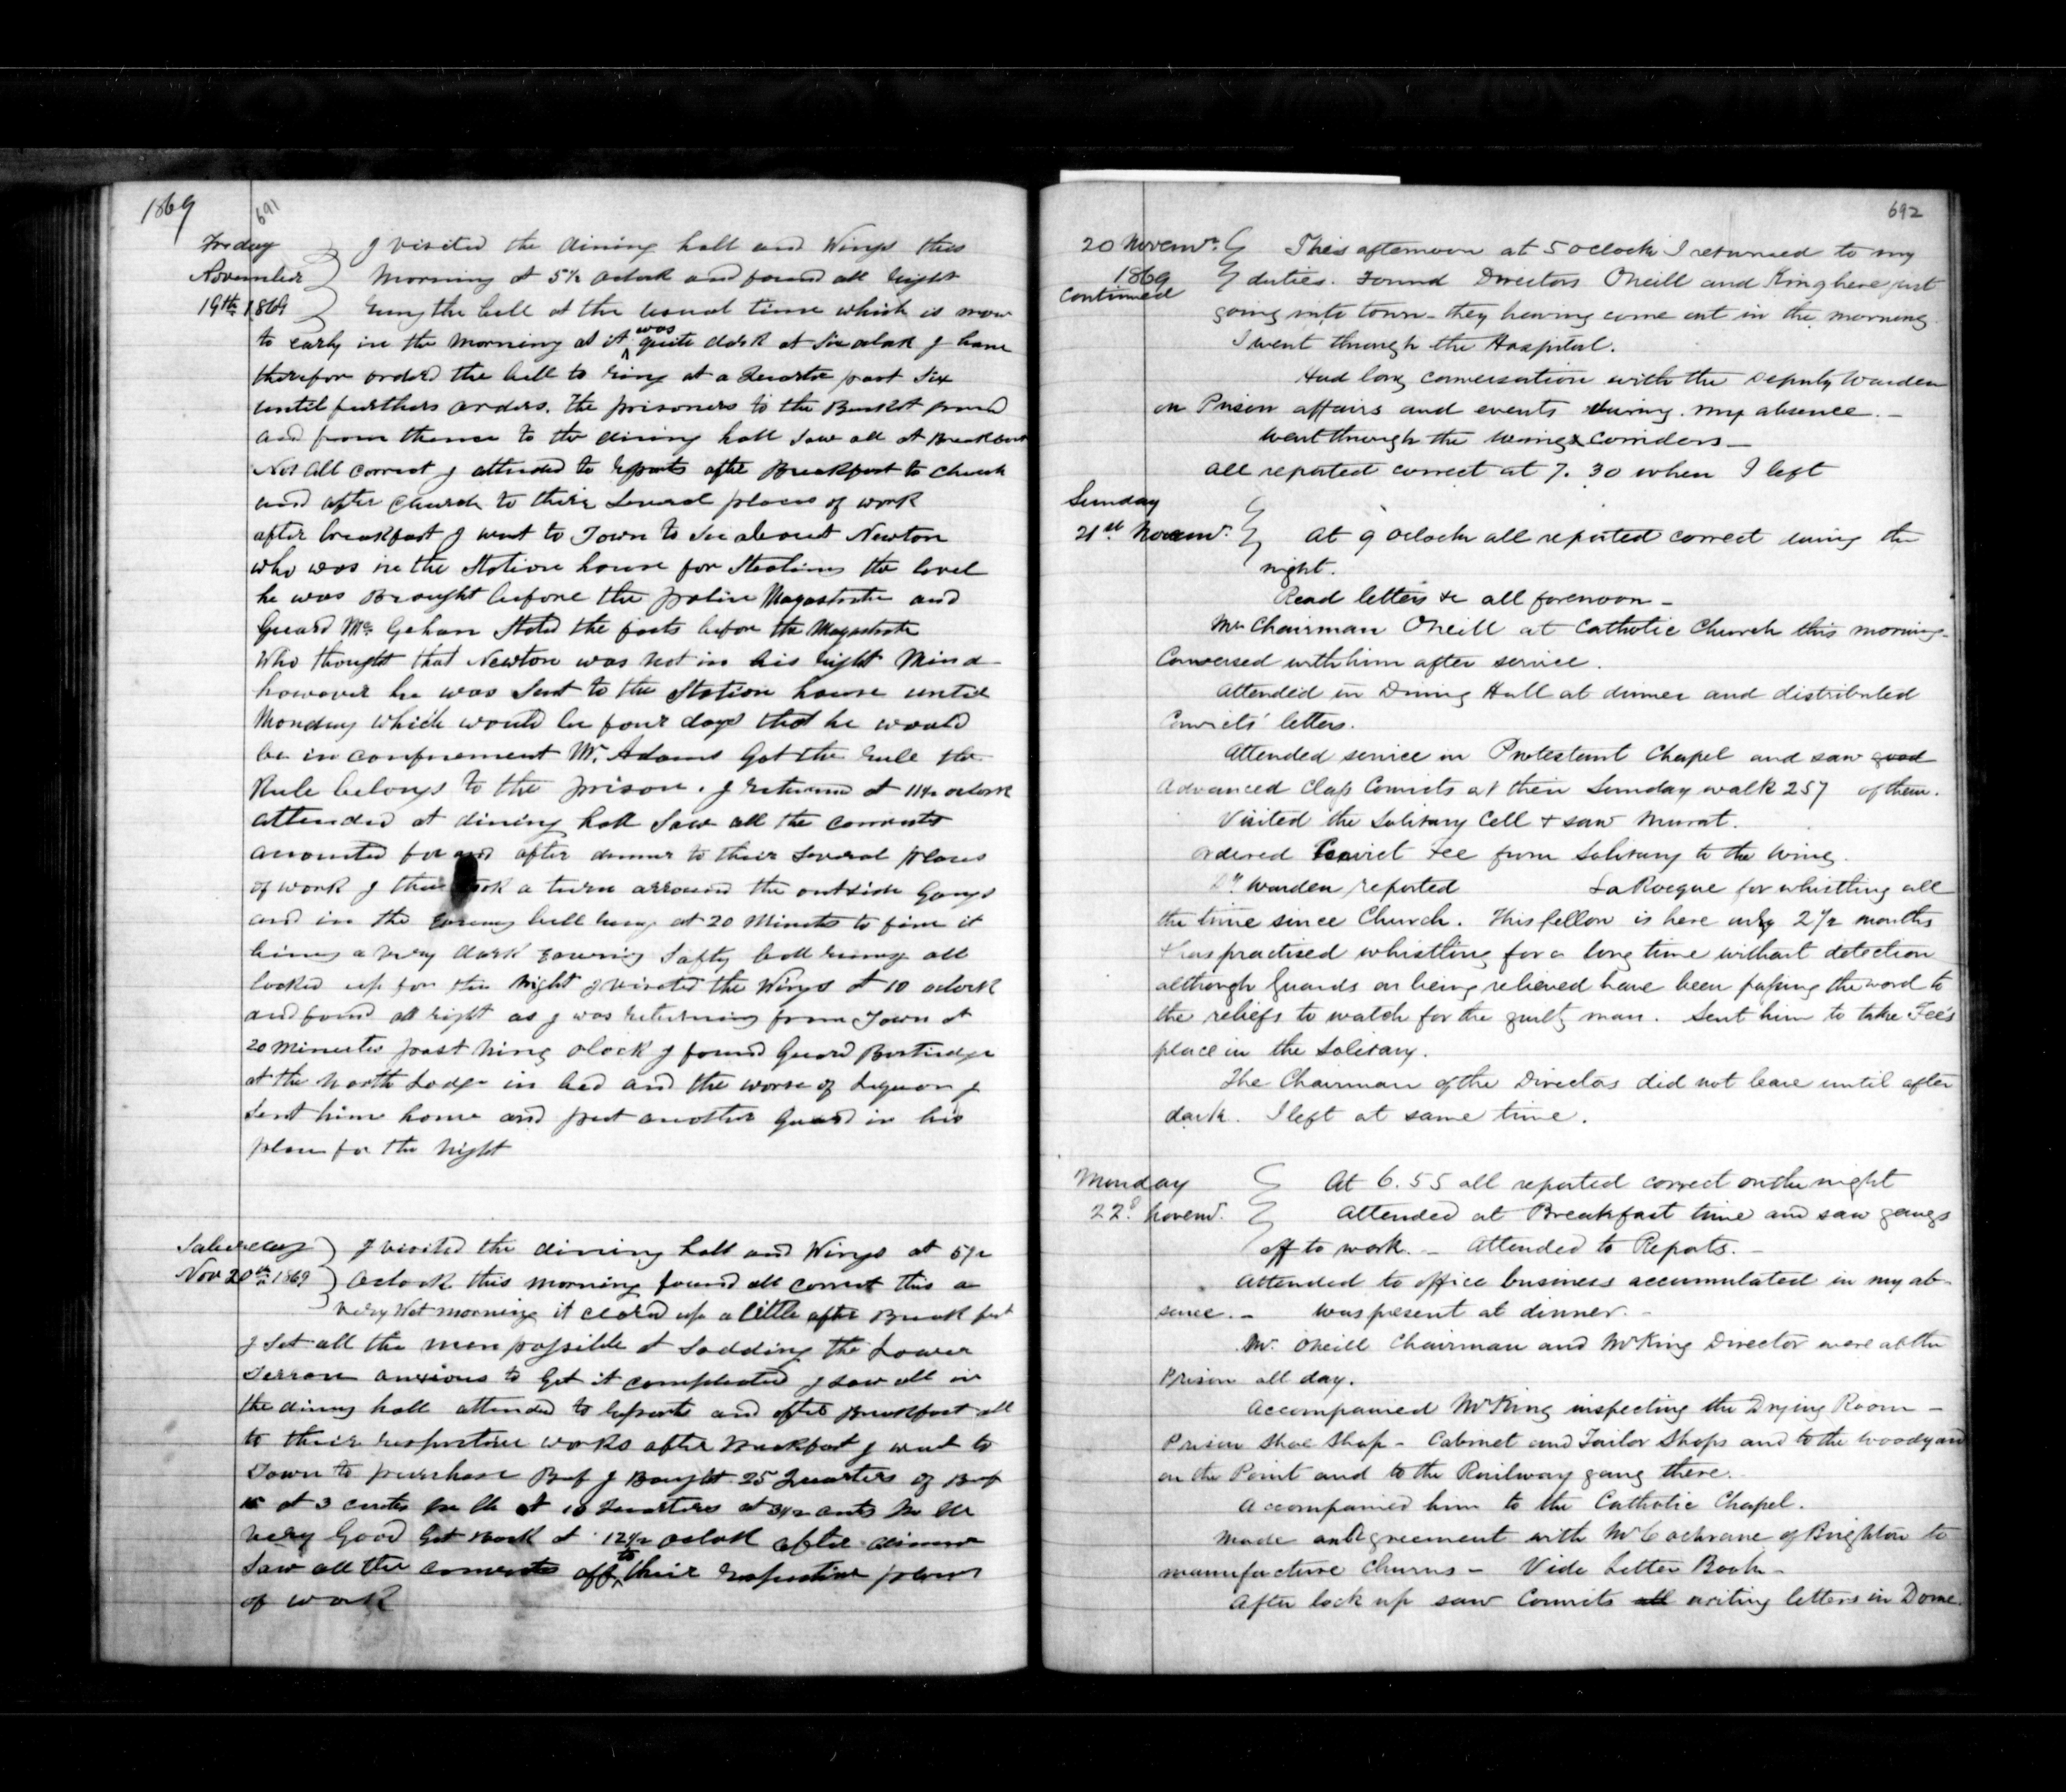 1869
691
Friday
November
19th 1869
I visited the dining hall and Wings this
Morning at 5½ oclock and found all right
rung the bell at the usual time which is now
to early in the morning as it was quite dark at Six oclock I have
therefor orderd the bell to ring at a Quarter past Six
until furthers orders. The prisoners to the Bucket ground
and from thence to the dining hall Saw all at Breakfast
Not all correct I attended to Reports after Breakfast to Church
and after Church to their Several places of work
after breakfast I went to Town to See about Newton
who was in the Station house for Stealing the level
he was Brought before the police Magastrate and
Guard Mc Gehan Stated the facts before the Magastrate
Who thought that Newton was not in his right Mind
however he was Sent to the Station house until
Monday which would be four days that he would
be in confinement Mr. Adams Got the rule the
Rule belongs to the prison. I returned at 11½ oclock
attended at dining hall Saw all the convicts
acounted for and after dinner to their Several places
of work I then took a turn arround the outside Gangs
and in the bell rung at 20 Minuts to five it
being a very dark Safty bell rung all
locked up for the Night I visited the Wings at 10 oclock
and found all right as I was returning from Town at
20 Minutes past Ning olock I found Guard
at the North Lodge in bed and the worse of Liquor I
Sent him home and put another Guard in his
place for the Night
Saturday
Nov 20th 1869
I visited the dining hall and Wings at 5½
Oclock this morning found all correct this a
very Wet morning it cleard up a little after Breakfast
I Set all the men possible at Sodding the Lower
Terrace anxious to Get it completed I Saw all in
the dining hall attended to reports and after Breakfast all
to their respective works after Breakfast I went to
Town to purchase Beef I Bought 25 Quarters of Beef
15 at 3 cents per lb at 10 Quarters at 3½ cents per lb
very Good Got back at 12½ oclok after dinner
Saw all the convicts off to their respective places
of work
692
20 Novemr.
1869
continued
This afternoon at 5 oclock I returned to my
duties. Found Directors Oneill and King here just
going into town – they having come out in the morning.
I went through the Hospital.
Had long conversation with the Deputy Warden
on Prison affairs and events during my absence. –
Went through the wings & corridors –
all reported correct at 7.30 when I left
Sunday
21st Novemr.
At 9 oclock all reported correct during the
night.
Read letters &c all forenoon –
Mr Chairman Oneill at Catholic Church this morning –
Conversed with him after service.
Attended in Dining Hall at dinner and distributed
Convicts' letters.
Attended service in Protestant Chapel and saw good
Advanced Class Convicts at their Sunday walk 257 of them.
Visited the Solitary Cell & saw Murat.
Ordered Convict Fee from Solitary to the Wing.
Dy Warden reported LaRocque for whistling all
the time since Church. This fellow is here only 2½ months
& has practised whistling for a long time without detection
although Guards on being relieved have been passing the word to
the reliefs to watch for the guilty man. Sent him to take Fee's
place in the Solitary.
The Chairman of the Directors did not leave until after
dark. I left at same time.
Monday
22d Novemr.
At 6.55 all reported correct on the night
Attended at Breakfast time and saw gangs
off to work. – Attended to Reports. –
Attended to office business accumulated in my ab-
sence. – Was present at dinner. –
Mr. Oneill Chairman and Mr King Director were at the
Prison all day.
Accompanied Mr King inspecting the Drying Room –
Prison Shoe Shop – Cabinet and Tailor Shops and to the woodyard
on the Point and to the Railway gang there.
Accompanied him to the Catholic Chapel.
Made an Agreement with Mr Cochrane of Brighton to
manufacture Churns – Vide Letter Book –
After lock up saw Convicts all writing letters in Dome.